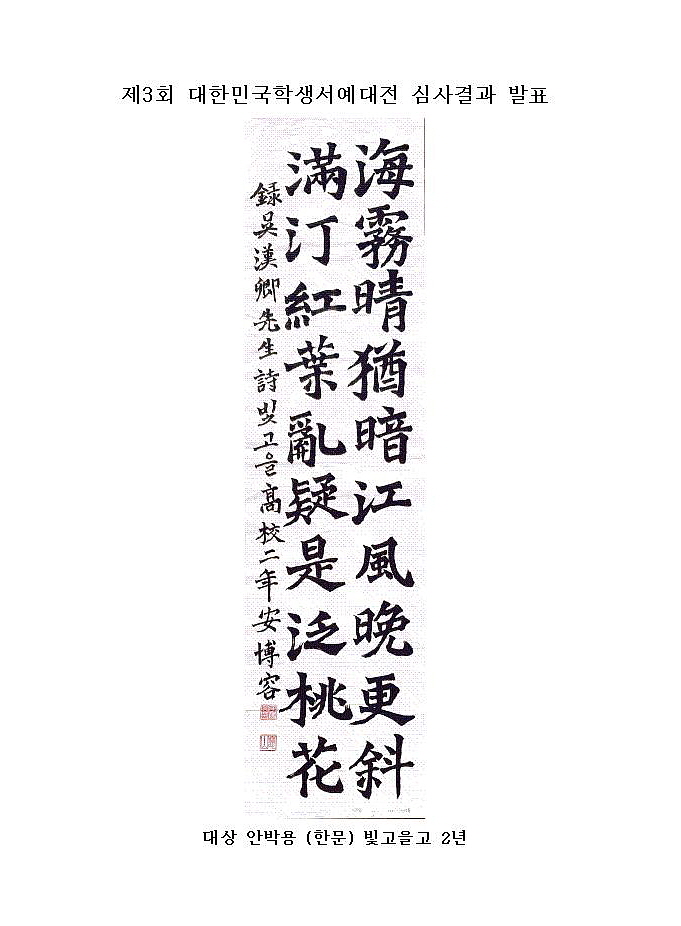 제3회 대한민국학생서예대전 심사결과 발표
海霧晴猶暗江風晩更斜
滿汀紅葉亂疑是泛桃花
録吳漢卿先生詩빛고을高校二年安博容
대상 안박용 (한문) 빛고을고 2년